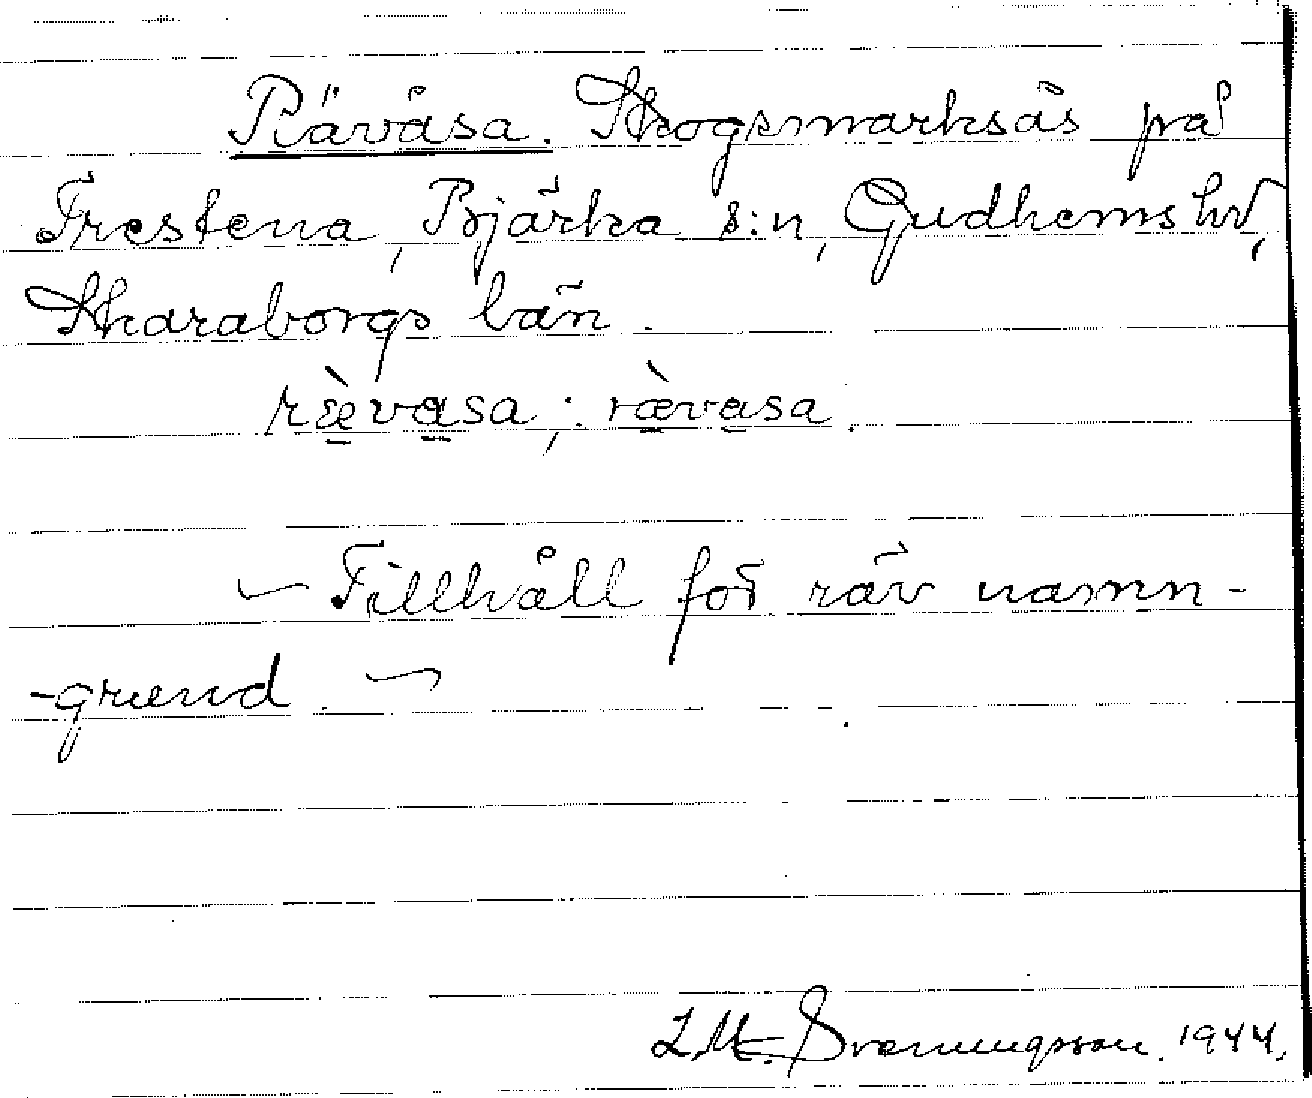 Rävåsa. Skogsmarksås på
Trestena, Bjärka s:n, Gudhems hd,
Skaraborgs län.
ræ̀vasa; ræ̀vasa.
Tillhåll för räv namn-
-grund.
Svenungsson. 1944.